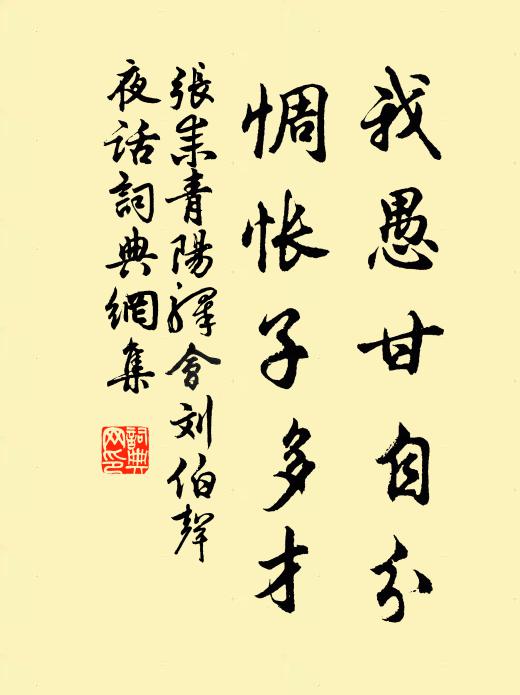 我愚甘自分
惆怅子多才
張耒青陽驛會刘伯聲
夜話詞典網集
詞典
网印